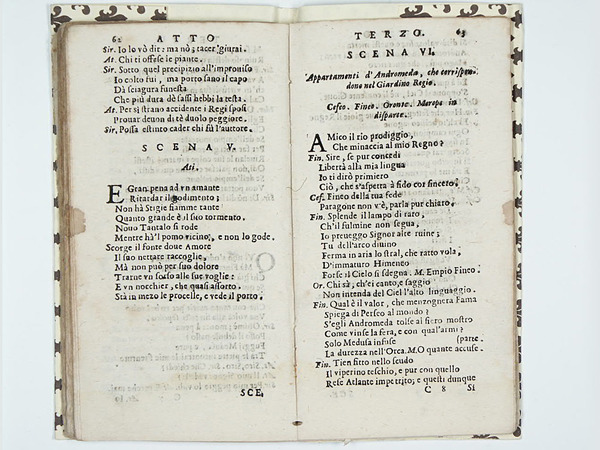 62 ATTO
Sir. Io lo vò dir: ma nò; tacer giurai.
At. Chi ti offese le piante.
Sir. Sotto quel precipizio all'improuiso
Io colto fui, ma porto sano il capo
Dà sciagura funesta
Che più dura dè sassi hebbi la testa.
At. Per sì strano accidente i Regi sposi
Prouar deuon di tè duolo peggiore.
Sir. Possa estinto cader chi fù l'auttore.
SCENA V.
Ati.
E Gran pena ad vn amante
Ritardar il godimento;
Non hà Stigie fiamme tante
Quanto grande è il suo tormento.
Nouo Tantalo si rode
Mentre hà'l pomo vicino, e non lo gode.
Scorge il fonte doue Amore
Il suo nettare raccoglie,
Mà non può per suo dolore
Trarne vn sorso alle sue voglie:
E vn nocchier, che quasi assorto
Stà in mezo le procelle, e vede il porto.
SCE.
TERZO. 63
SCENA VI.
Appartamenti d'Andromeda, che corrispon-
dono nel Giardino Regio.
Cefeo. Fineo. Oronte. Merope in
disparte.
AMico il rio prodiggio,
Che minaccia al mio Regno?
Fin. Sire, se pur concedi
Libertà alla mia lingua
Io ti dirò primiero
Ciò, che s'aspetta à fido cor sincero.
Cef. Fineo della tua fede
Paragone non v'è, parla pur chiaro.
Fin. Splende il lampo di raro,
Ch'il fulmine non segua,
Io preueggo Signor alte ruine;
Tu dell'arco diuino
Ferma in aria lo stral, che ratto vola,
D'immaturo Himeneo
Forse il Cielo si sdegna. M. Empio Fineo.
Or. Chi sà, ch'ei canto, e saggio
Non intenda del Ciel l'alto linguaggio.
Fin. Qual è il valor, che menzognera Fama
Spiega di Perseo al mondo?
S'egli Andromeda tolse al fiero mostro
Come vinse la fera, e con qual'armi?
Solo Medusa infuse (parte.
La durezza nell'Orca. M. O quante accuse.
Fin. Tien fitto nello scudo
Il viperino teschio, e pur con quello
Rese Atlante impetrito; e questi dunque
C 8 Si